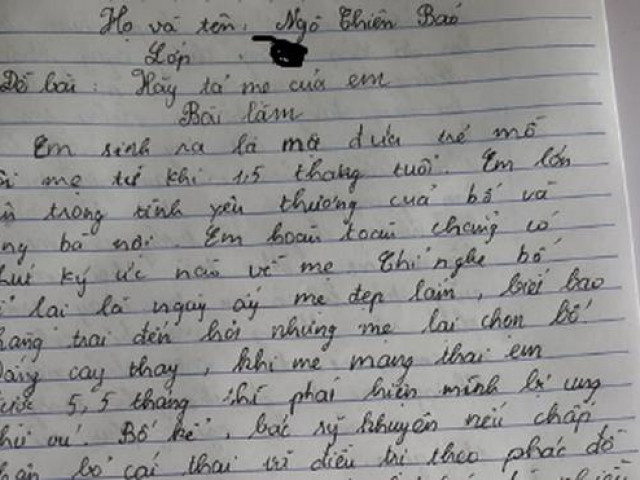 Họ và tên: Ngô Thiên Bảo
Lớp
Đề bài: Hãy tả mẹ của em
Bài làm
Em sinh ra là một đứa trẻ mồ
côi mẹ từ khi 1,5 tháng tuổi. Em lớn
lên trong tình yêu thương của bố và
ông bà nội. Em hoàn toàn chẳng có
chút ký ức nào về mẹ. Chỉ nghe bố
kể lại là ngày ấy mẹ đẹp lắm, biết bao
chàng trai đến hỏi nhưng mẹ lại chọn bố
Đắng cay thay, khi mẹ mang thai em
được 5,5 tháng thì phát hiện mình bị ung
thư vú. Bố kể, bác sỹ khuyên nếu chấp
nhận bỏ cái thai và điều trị theo phác đồ